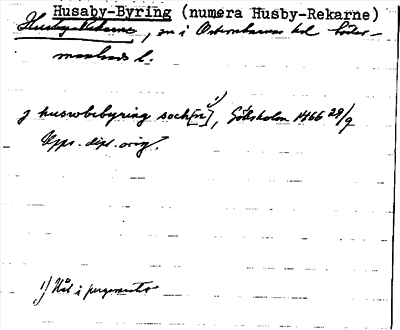 Husaby-Byring (numera Husby-Rekarne)
Husby-Rekarne, sn i Österrekarne hd Söder-
manlands l.
j huswbebyring sock[n]¹⁾, Göksholm 1466 29/9
Upps. dipl. orig.
1) Hål i pergamentet